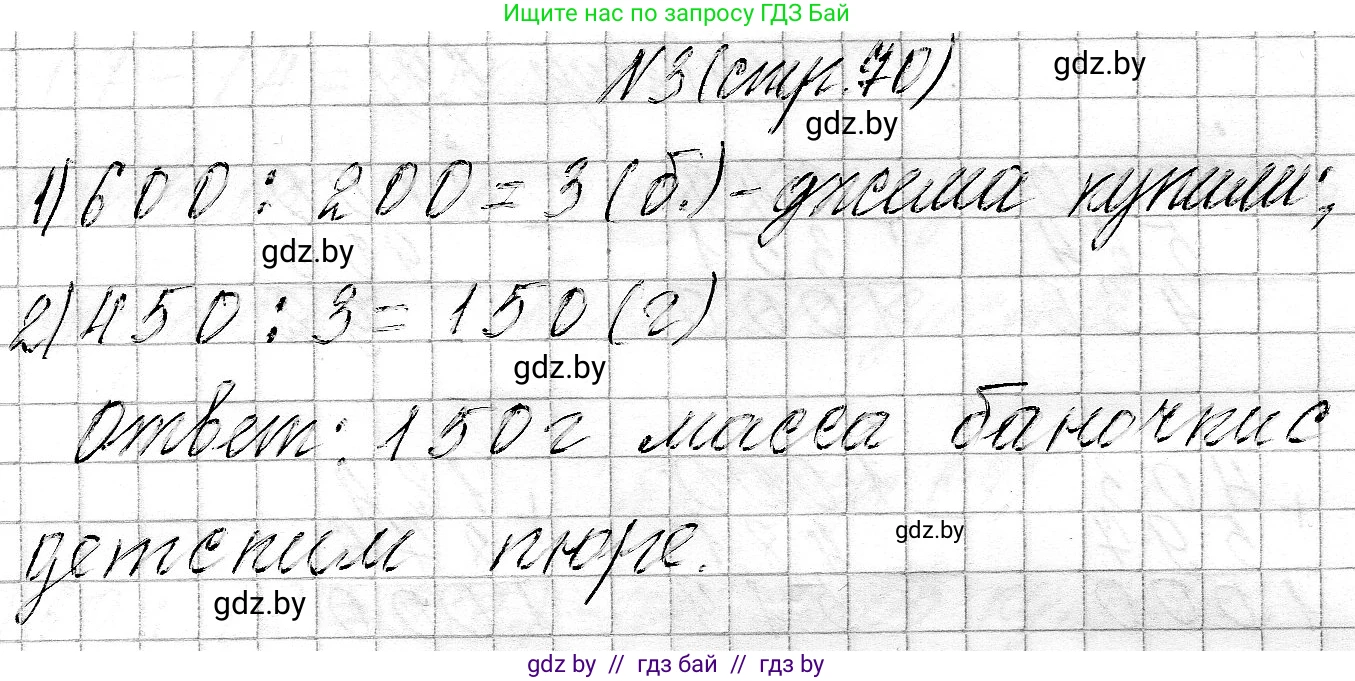 Ищите нас по запросу ГДЗ Бай
N3 (стр. 70)
gdz.by
gdz.by
1) 600 : 200 = 3 (б.) - джема купили;
gdz.by
2) 450 : 3 = 150 (г)
gdz.by
Ответ: 150 г масса баночки с
детским пюре.
gdz.by
gdz.by
gdz by // гдз бай // гдз by